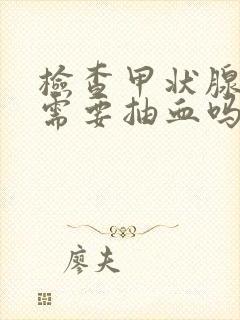 檢查甲状腺
需要抽血吗
廖夫